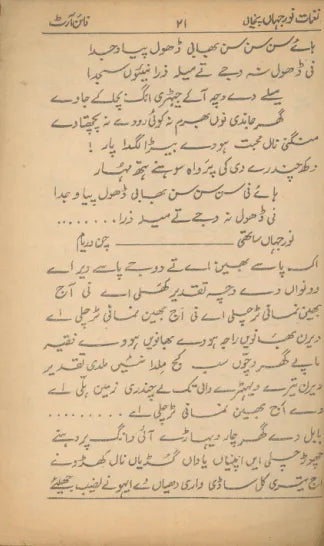 نغمات نور جہاں پنجابی ۲۱ فائن آرٹ
ہائے سن سن سن بھابی ڈھول پیا وجدا
نی ڈھول نہ وجے تے میلہ ذرا نیئوں سجدا
میلے دے وچہ آکے جہڑی انگ بچا کے جاوے
گھر جاندی نوں بھرم نہ کوئی رووے نہ پچھتاوے
منگنی نال محبت ہووے بیڑا لگدا پار !
دی کی پرواہ سوہنے ہتھ مہار
ہائے نی سن سن سن بھابی ڈھول پیا وجدا
نی ڈھول نہ وجے تے میلہ ذرا ........
نور جہاں ساتھی ــــــــ چن وریام
اک پاسے بھین اے تے دوجے پاسے ویر اے
دوناں دے وچہ تقدیر کھلی اے نی آج
بھین نمانی ٹر چلی اے نی آج بھین نمانی ٹر چلی اے
ویرن بھانویں راجہ ہووے بھانویں ہووے فقیر
ماپے گھر وچوں سب کجھ ملدا نئیں ملدی تقدیر
ویرن تیرے ویہڑے والی تک لے چندری زمین ہلی اے
وے آج بھین نمانی ٹر چلی اے ........
بابل دے گھر چار دیہاڑے آئی وانگ پروہنے
چھوڑ چلی ایں اپنیاں یاداں گڈیاں نال کھڈونے
آج تیری کل ساڈی واری دھیاں دے ایہو نے نصیب